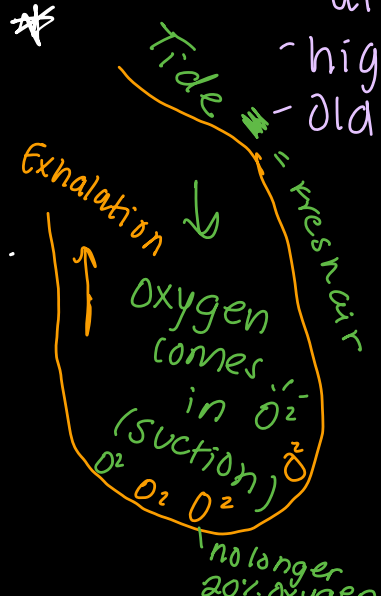 - hig
- Old
Tide = Freshair
Exhalation
Oxygen
comes
in O2
(suction)
O2
O2
O2
O2
no longer
20% oxygen